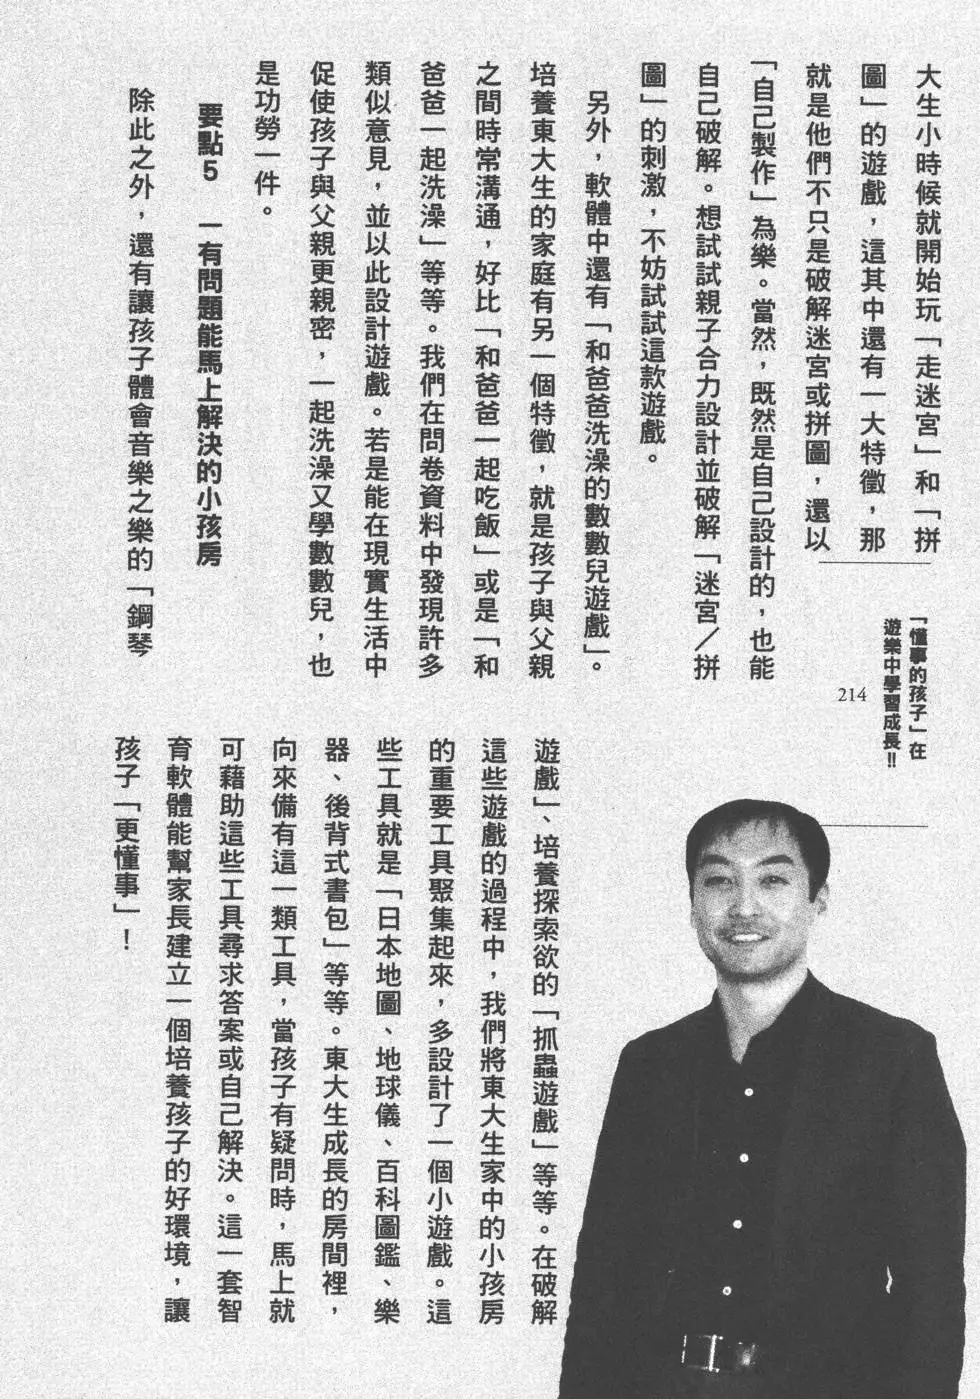 大生小時候就開始玩「走迷宮」和「拼
圖」的遊戲，這其中還有一大特徵，那
就是他們不只是破解迷宮或拼圖，還以
「自己製作」為樂。當然，既然是自己設計的，也能
自己破解。想試試親子合力設計並破解「迷宮／拼
圖」的刺激，不妨試試這款遊戲。
另外，軟體中還有「和爸爸洗澡的數數兒遊戲」。
培養東大生的家庭有另一個特徵，就是孩子與父親
之間時常溝通，好比「和爸爸一起吃飯」或是「和
爸爸一起洗澡」等等。我們在問卷資料中發現許多
類似意見，並以此設計遊戲。若是能在現實生活中
促使孩子與父親更親密，一起洗澡又學數數兒，也
是功勞一件。
要點5 一有問題能馬上解決的小孩房
除此之外，還有讓孩子體會音樂之樂的「鋼琴
遊戲」、培養探索欲的「抓蟲遊戲」等等。在破解
這些遊戲的過程中，我們將東大生家中的小孩房
的重要工具聚集起來，多設計了一個小遊戲。這
些工具就是「日本地圖、地球儀、百科圖鑑、樂
器、後背式書包」等等。東大生成長的房間裡，
向來備有這一類工具，當孩子有疑問時，馬上就
可藉助這些工具尋求答案或自己解決。這一套智
育軟體能幫家長建立一個培養孩子的好環境，讓
孩子「更懂事」！
「懂事的孩子」在
遊樂中學習成長!!
214